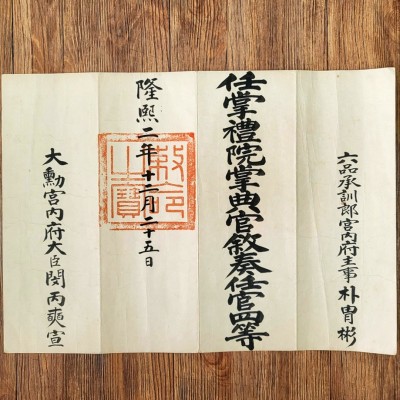 六品承訓郎宮內府主事朴冑彬
任掌禮院掌典官敘奏任官四等
隆熙二年十二月二十五日
勅命之寶
大勳宮內府大臣閔丙奭宣